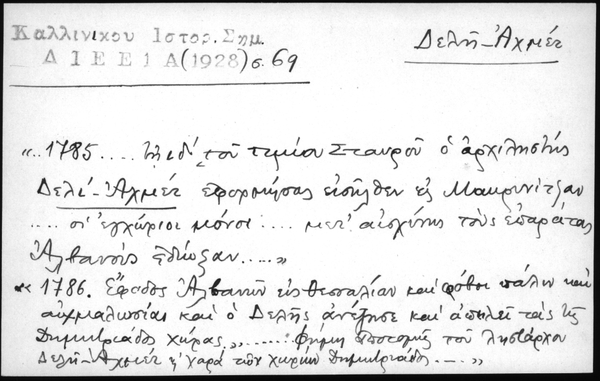 Καλλινίκου Ιστορ. Σημ.
Δ Ι Ε Ε 1 Α (1928) σ. 69
Δελῆ-Ἀχμέτ
«.. 1785 .... τῇ ιδ' τοῦ τιμίου Σταυροῦ ὁ ἀρχιληστής
Δελί-Ἀχμέτ ἐφορμήσας εἰσῆλθεν εἰς Μακρινίτζαν
.... οἱ ἐγχώριοι μόνοι .... μετ' αἰσχύνης τοὺς ἐπαράτας
Ἀλβανοὺς ἐδίωξαν .... »
« 1786. Ἔφοδος Ἀλβανῶν εἰς Θεσσαλίαν καὶ φόβοι πάλιν καὶ
αἰχμαλωσίαι καὶ ὁ Δελῆς ἀνέζησε καὶ ἀπειλεῖ τὰς τῆς
Δημητριάδος χώρας „ ...... : φήμη τοῦ ληστάρχου
Δελῆ-Ἀχμέτ χαρά τῶν χωρῶν Δημητριάδος .... »